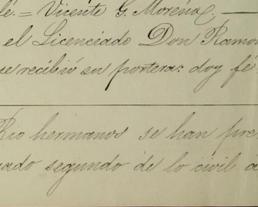 lé.= Vicente G. Morena,
el Licenciado Don Ramon
se recibió su portera: doy fé
Rio hermanos se han pre
gado segundo de lo civil a